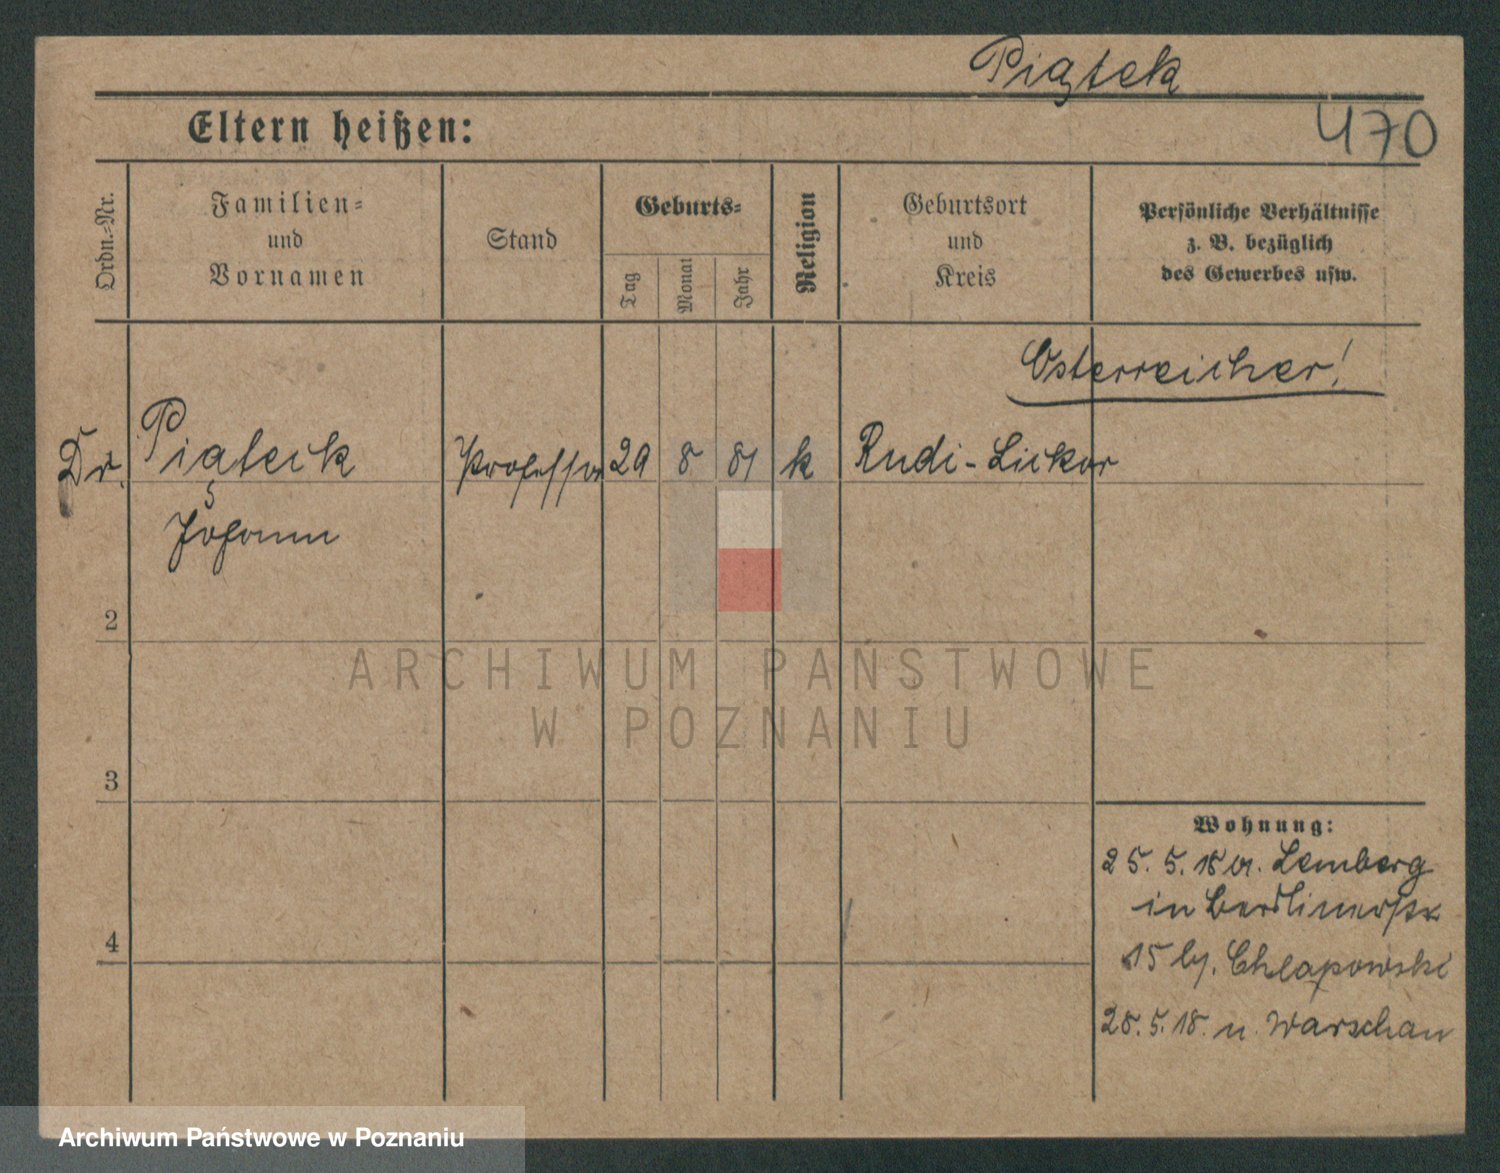 Piątek
Eltern heißen:
470
Ordn.-Nr.
Familien-
und
Vornamen
Stand
Geburts-
Tag
Monat
Jahr
Religion
Geburtsort
und
Kreis
Persönliche Verhältnisse
z. B. bezüglich
des Gewerbes usw.
Österreicher!
Dr. Piąteck Professor 29 8 81 k Rudi-
Johann
2
3
4
Wohnung:
25. 5. 18 Lemberg
in Berlinerstr
15 by. Chlapowski
28. 5. 18. n. Warschau
ARCHIWUM PAŃSTWOWE
W POZNANIU
Archiwum Państwowe w Poznaniu